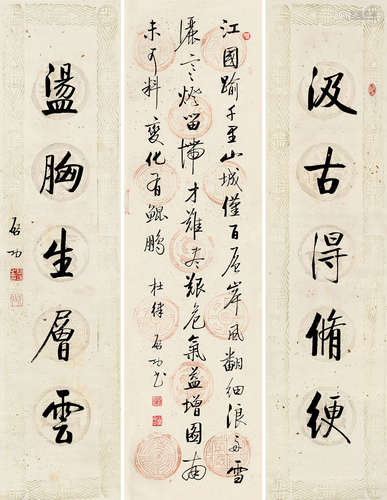 汲古得脩綆
江國踰千里山城僅百層岸風翻細浪舟雪
灑寒燈留滯才難盡艱危氣益增圖南
未可料變化有鯤鵬 杜律 啓功書
盪胸生層雲
啓功